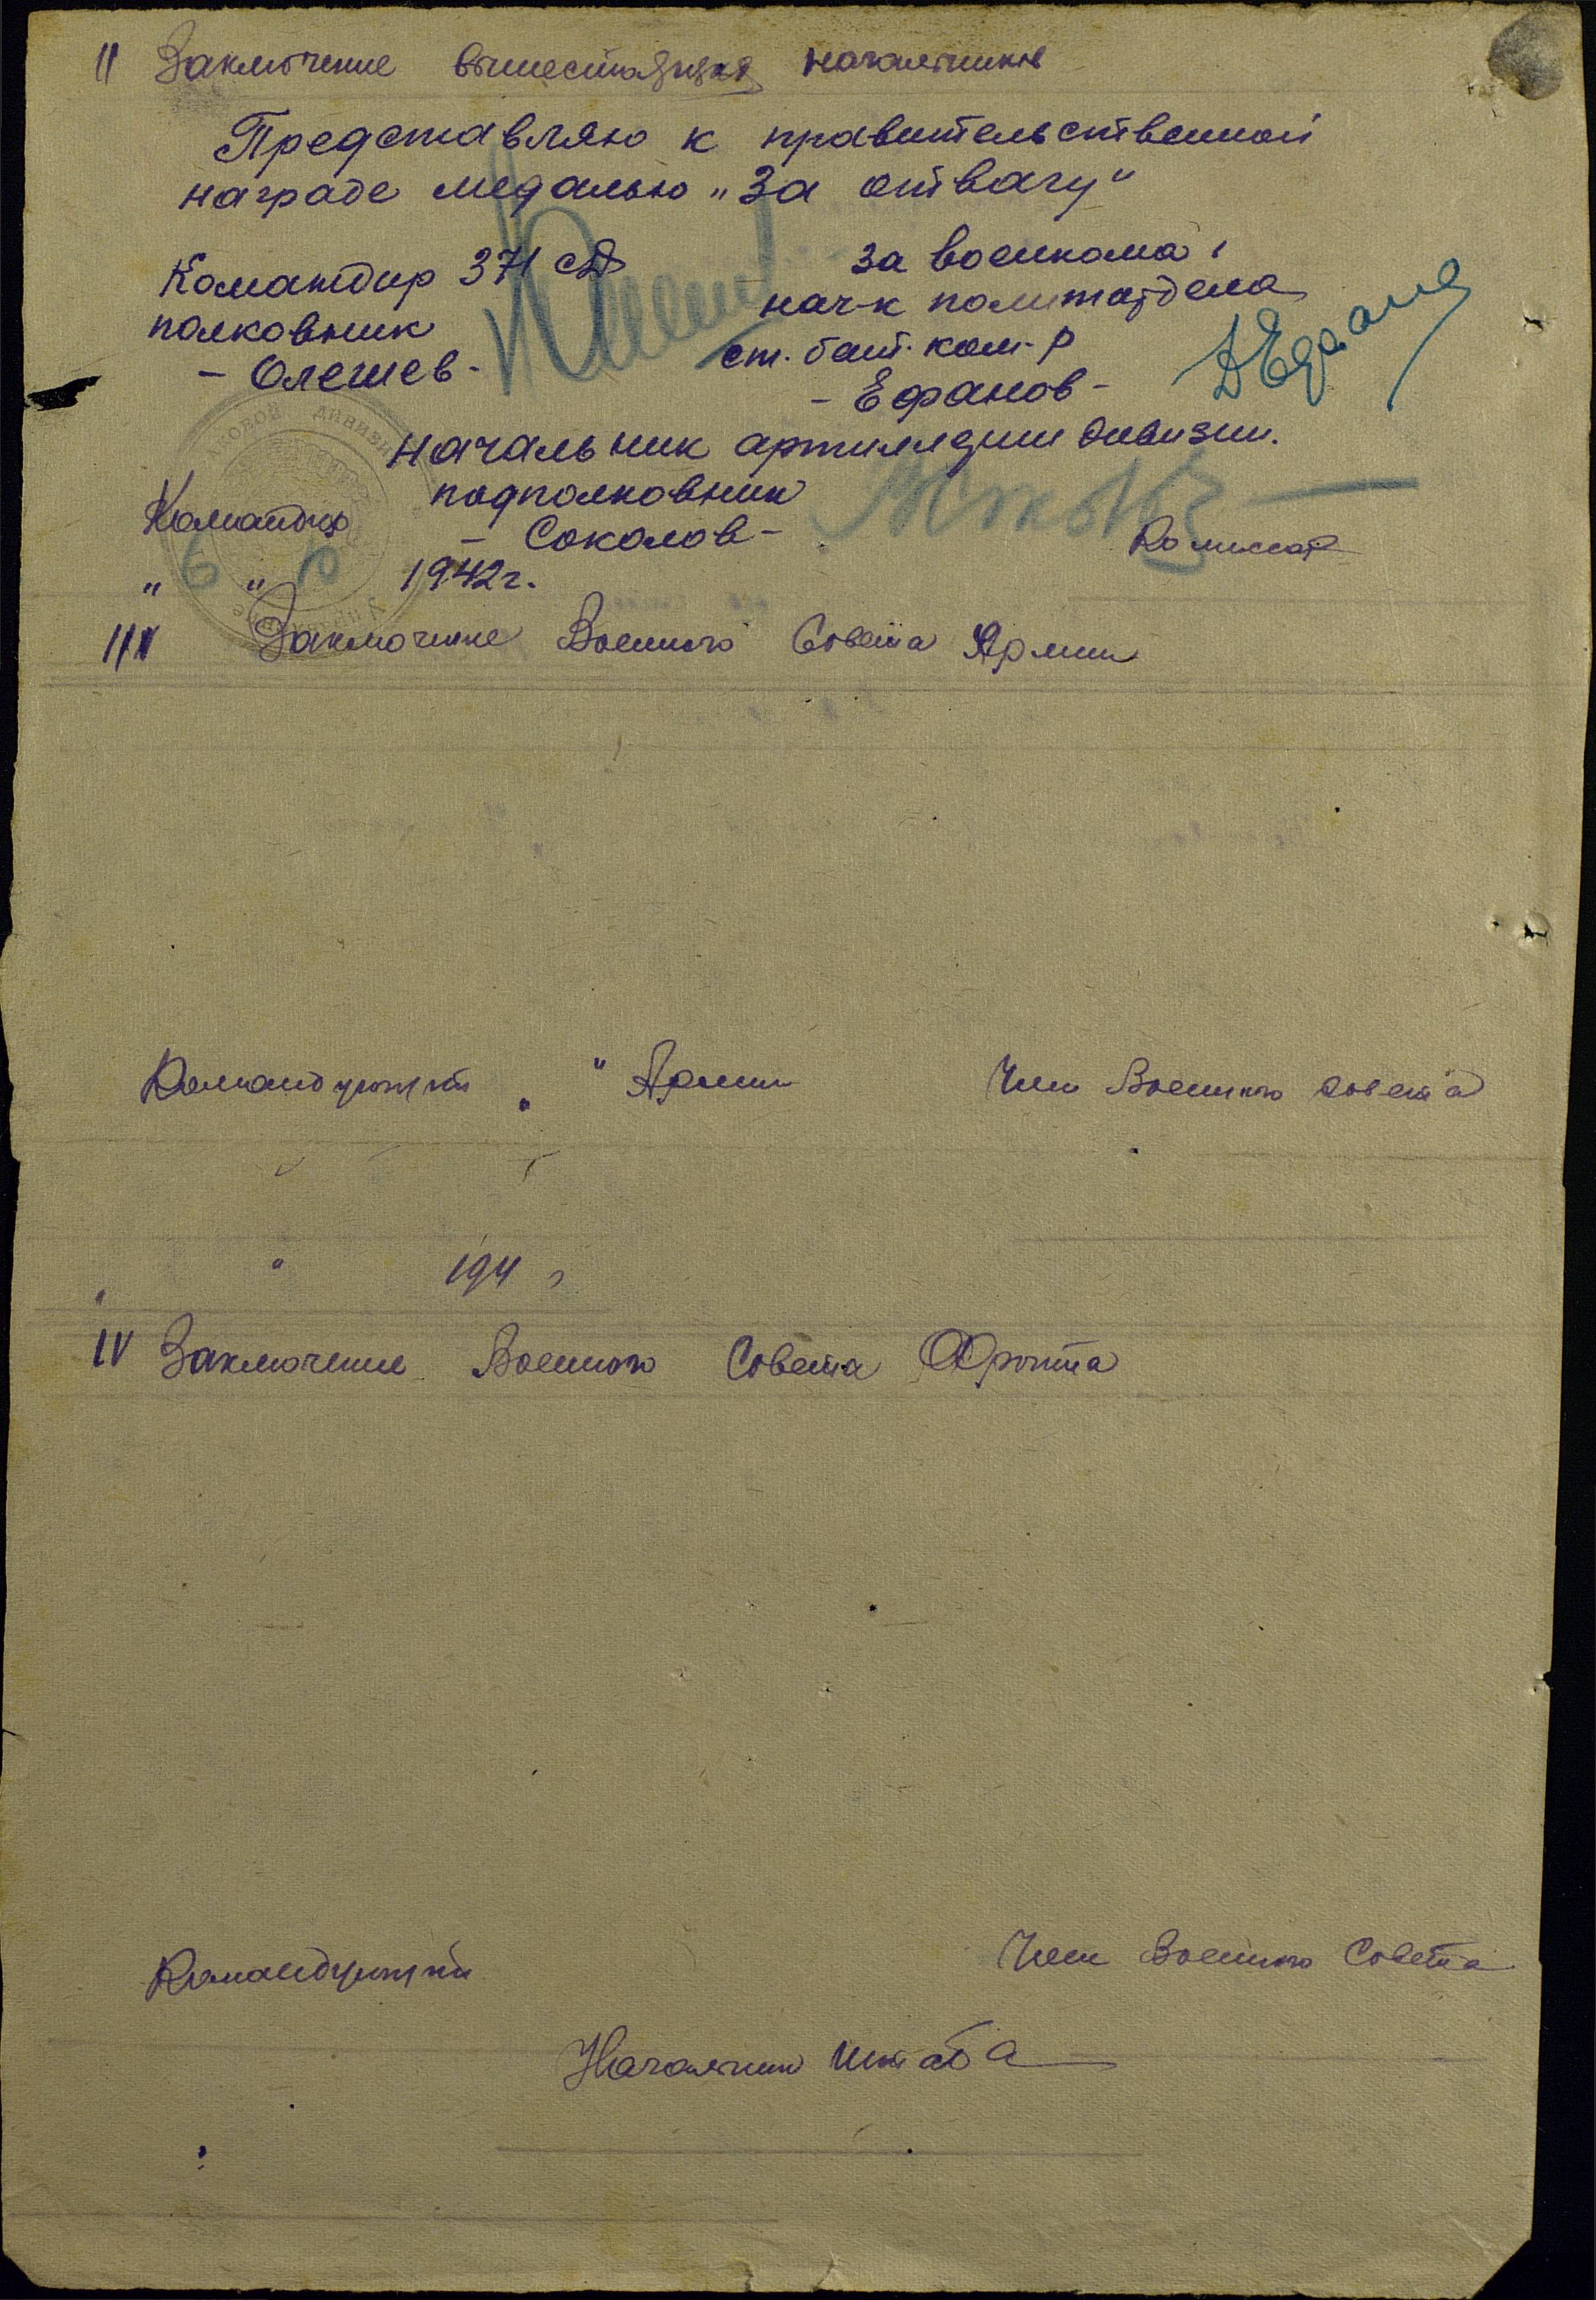 II Заключение вышестоящих начальников
Представляю к правительственной
награде медалью „За отвагу"
Командир 371 сд
полковник
- Олешев -
за военкома,
нач-к политотдела
ст. бат. ком-р
- Ефанов -
начальник артиллерии дивизии.
подполковник
- Соколов -
Командир
Комиссар
" " 1942 г.
III Заключение Военного Совета Армии
Командующий " " Армии
Член Военного Совета
" " 194 г
IV Заключение Военного Совета Фронта
Командующий
Член Военного Совета
Начальник штаба